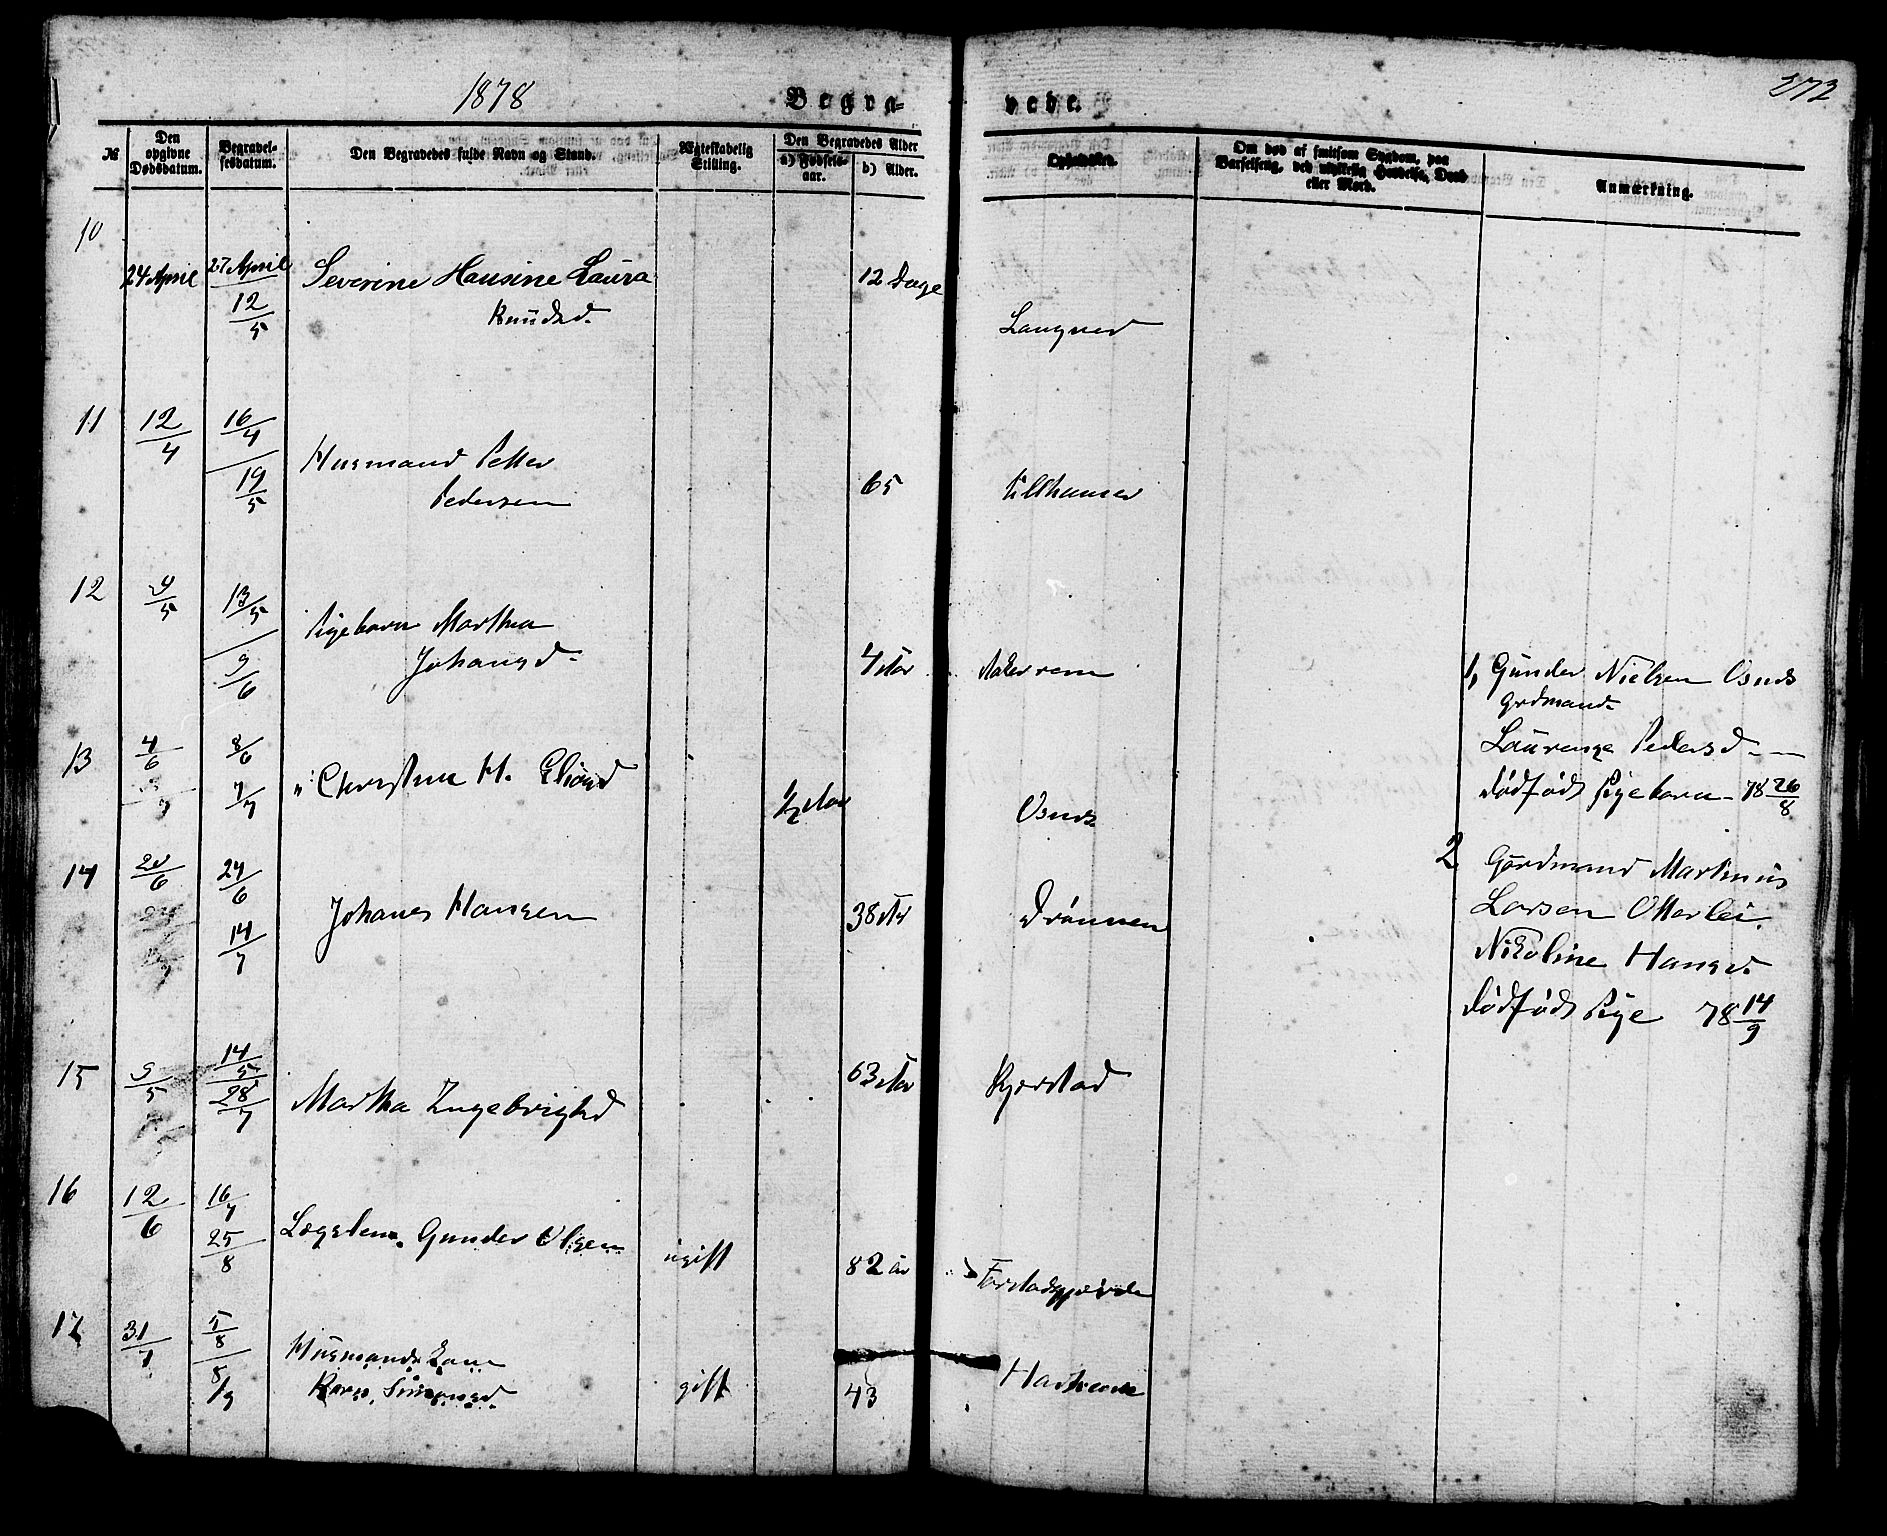 1878
Begra-
vede.
272
№
Den opgivne Dødsdatum.
Begravelsesdatum.
Den Begravedes fulde Navn og Stand.
Ægteskabelig Stilling.
Den Begravedes Alder
a) Fødsels-aar.
b) Alder.
Opholdssted.
Om død af smitsom Sygdom, paa Barselseng, ved ulykkelig Hændelse, Drab eller Mord.
Anmærkning.
10
24 April 27 April Severine Hansine Laura 12 Dage
12/5 Knudsd. Langnes
11 12/4 16/4
Husmand Petter
19/5 Pedersen 65
12 9/5 13/5
Pigebarn Martha
9/6 Johansd 4 Aar
13 4/6 8/6
" H.
7/7 1/2 Aar Osnes
14 24/6
Johanes Hansen 38 Aar Drönnen
14/7
15 9/5 14/5 63 Aar Kjerstad
28/7 Martha Ingebrigtsd
16 12/6 16/7
25/8 Lægslem. Gunder Olsen ugift 82 år
17 31/7 5/8
Husmands Kone
8/9 gift 43
1, Gunder Nielsen Osnes
Grdmand
Laurense Pedersd
dödfödt Pigebarn 78 26/8
2 Gårdmand Martinus
Larsen Otterlei
Nikoline Hansd.
dödfödt Pige 78 14/9